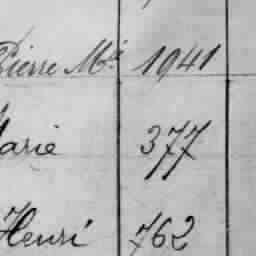 Pierre Mie 1941
Marie 377
Henri 762